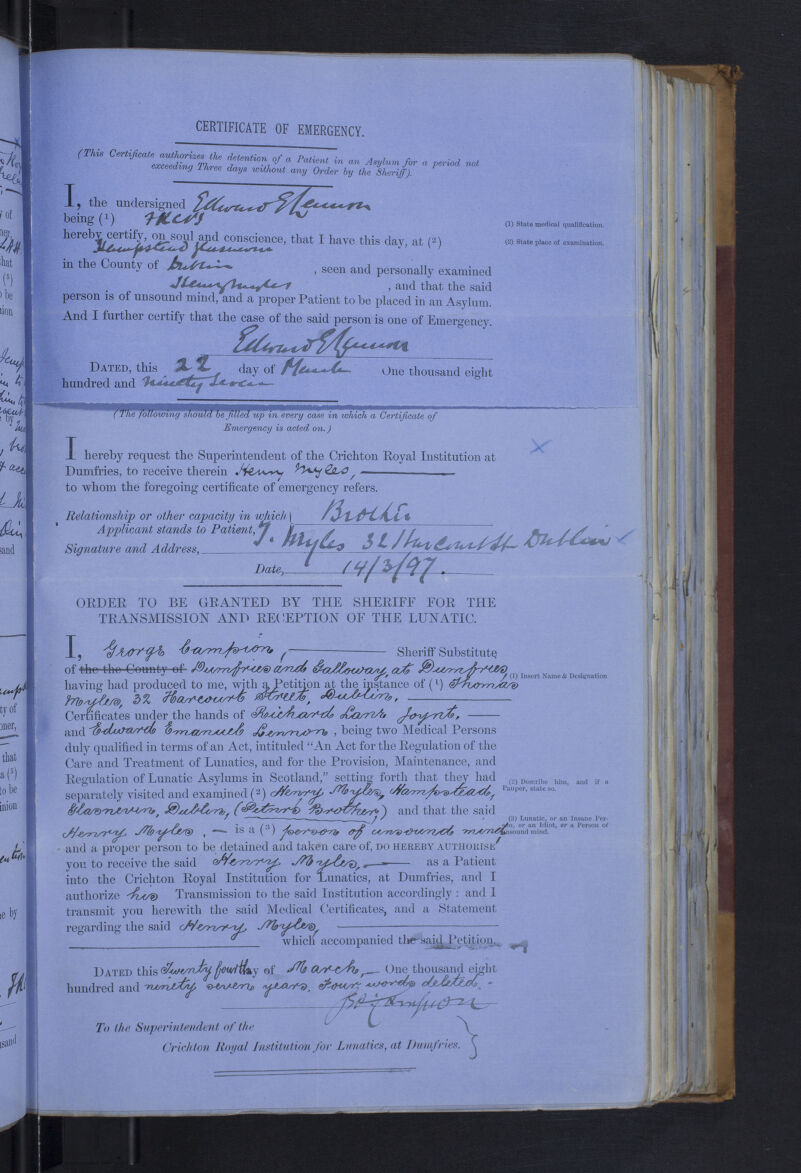 CERTIFICATE OF EMERGENCY.
(This Certificate authorizes the detention of a Patient in an Asylum for a period not
exceeding Three days without any Order by the Sheriff).
I, the undersigned Edward E Lennon
being (1) FRCSI
(1) State medical qualification.
hereby certify, on soul and conscience, that I have this day, at (2)
(2) State place of examination.
Hampstead Glasnevin
in the County of Dublin , seen and personally examined
Henry Myles , and that the said
person is of unsound mind, and a proper Patient to be placed in an Asylum.
And I further certify that the case of the said person is one of Emergency.
Edward E Lennon
DATED, this 22 day of March One thousand eight
hundred and ninety seven
(The following should be filled up in every case in which a Certificate of
Emergency is acted on.)
I hereby request the Superintendent of the Crichton Royal Institution at
Dumfries, to receive therein Henry Myles,
to whom the foregoing certificate of emergency refers.
Relationship or other capacity in which } Brother
Applicant stands to Patient,
Signature and Address, T. Myles 32 Harcourt St Dublin
Date, 14/3/97.
ORDER TO BE GRANTED BY THE SHERIFF FOR THE
TRANSMISSION AND RECEPTION OF THE LUNATIC.
I, George Campion, Sheriff Substitute
of the the County of Dumfries and Galloway, at Dumfries,
having had produced to me, with a Petition at the instance of (1) Thomas
(1) Insert Name & Designation
Myles, 32 Harcourt Street, Dublin,
Certificates under the hands of Richard Lane Joynt,
and Edward Emanuel Lennon, being two Medical Persons
duly qualified in terms of an Act, intituled "An Act for the Regulation of the
Care and Treatment of Lunatics, and for the Provision, Maintenance, and
Regulation of Lunatic Asylums in Scotland," setting forth that they had
separately visited and examined (2) Henry Myles, Hampstead,
(2) Describe him, and if a
Pauper, state so.
Glasnevin, Dublin, (Petnrs Brother) and that the said
Henry Myles, — is a (3) person of unsound mind
(3) Lunatic, or an Insane Per-
son, or an Idiot, or a Person of
unsound mind.
and a proper person to be detained and taken care of, DO HEREBY AUTHORISE
you to receive the said Henry Myles, as a Patient
into the Crichton Royal Institution for Lunatics, at Dumfries, and I
authorize his Transmission to the said Institution accordingly: and I
transmit you herewith the said Medical Certificates, and a Statement
regarding the said Henry Myles,
which accompanied the said Petition.
DATED this Twenty fourth day of March, One thousand eight
hundred and ninety seven years. Four words deleted.
Geo Campion
To the Superintendent of the
Crichton Royal Institution for Lunatics, at Dumfries.